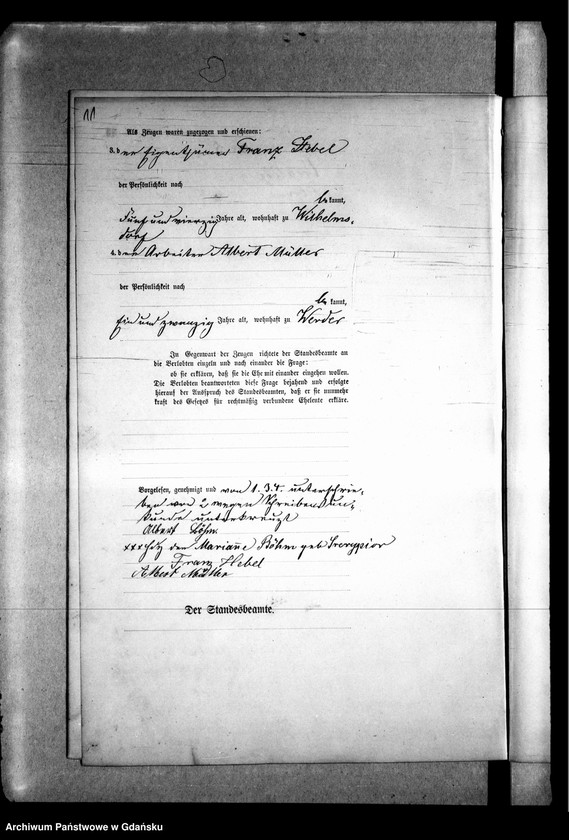 11
Als Zeugen waren zugezogen und erschienen:
3. der Eigenthümer Franz Hebel
der Persönlichkeit nach
be kannt,
Fünf und vierzig Jahre alt, wohnhaft zu Wilhelms-
dorf
4. der Arbeiter Albert Müller
der Persönlichkeit nach
be kannt,
Ein und zwanzig Jahre alt, wohnhaft zu Werder
In Gegenwart der Zeugen richtete der Standesbeamte an
die Verlobten einzeln und nach einander die Frage:
ob sie erklären, daß sie die Ehe mit einander eingehen wollen.
Die Verlobten beantworteten diese Frage bejahend und erfolgte
hierauf der Ausspruch des Standesbeamten, daß er sie nunmehr
kraft des Gesetzes für rechtmäßig verbundene Eheleute erkläre.
Vorgelesen, genehmigt und von 1. 3. 4. unterschrie-
ben von 2 wegen Schreibensun-
kunde unterkreuzt
Albert Böhm
+++ Hdz der Marianne Böhm geb
Franz Hebel
Albert Müller
Der Standesbeamte.
Archiwum Państwowe w Gdańsku